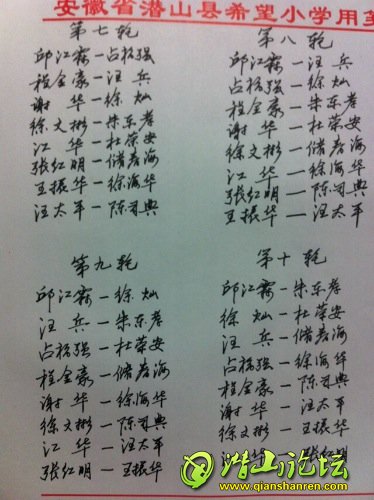 安徽省潜山县希望小学用
第七轮
邱江霖—占核强
程金豪—汪兵
谢华—徐灿
徐文彬—朱东孝
江华—杜荣安
张红明—储彦海
王振华—徐海华
汪太平—陈习典
第八轮
邱江霖—汪兵
占核强—徐灿
程金豪—朱东孝
谢华—杜荣安
徐文彬—储彦海
江华—徐海华
张红明—陈习典
王振华—汪太平
第九轮
邱江霖—徐灿
汪兵—朱东孝
占核强—杜荣安
程金豪—储彦海
谢华—徐海华
徐文彬—陈习典
江华—汪太平
张红明—王振华
第十轮
邱江霖—朱东孝
徐灿—杜荣安
汪兵—储彦海
占核强—徐海华
程金豪—陈习典
谢华—汪太平
徐文彬—王
潜山论坛
www.qianshanren.com